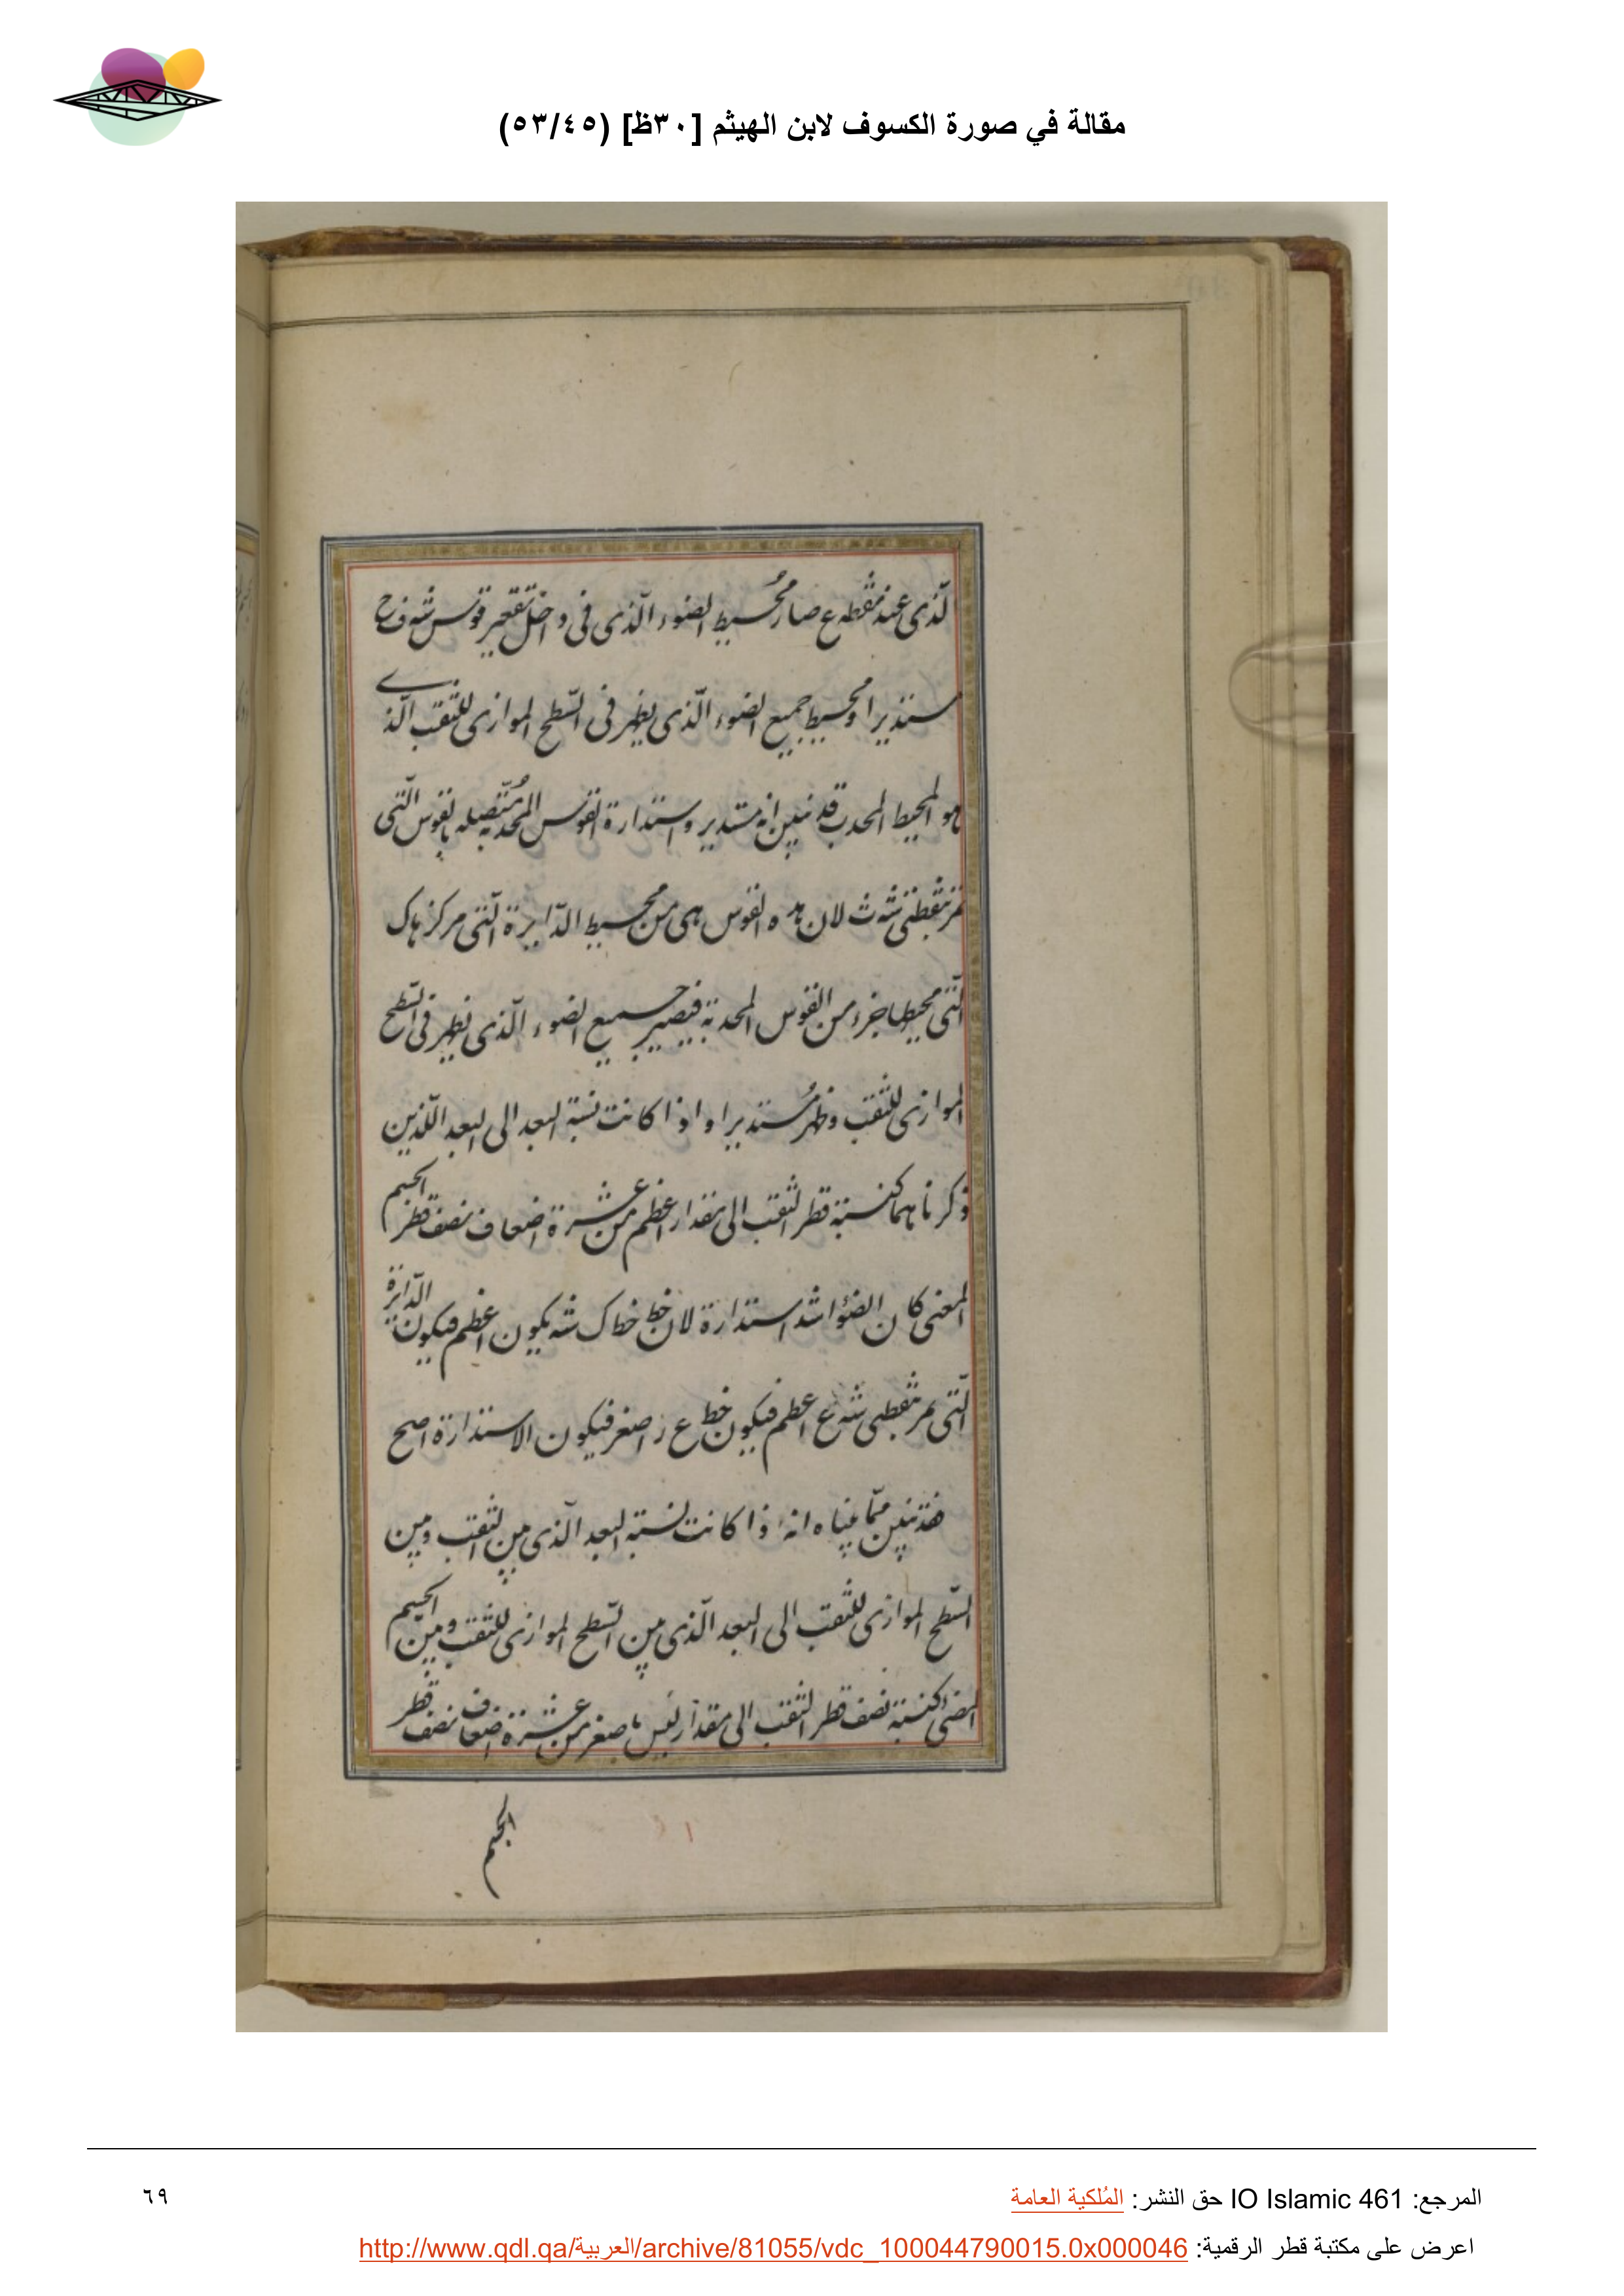 مقالة في صورة الكسوف لابن الهيثم [٣٠ظ] (٥٣/٤٥)
الّذى عند نقطه ع صار مُحيط الضوء الّذى فى داخل تقعير قوس شه ف ح
مستديرا ومحيط جميع الضوء الّذى يظهر فى السّطح الموازى للثقب الّذى
هو المحيط المحدب قد تبين انه مستدير واستدارة القوس المحدبه مُتّصله بالقوس الّتى
تمر بنقطتى شه ث لان هذه القوس هى من محيط الدّايرة الّتى مركزها ك
الّتى محيطها جزء من القوس المحدبة فيصير جميع الضوء الّذى يظهر فى السّطح
الموازى للثقب وظهر مُستديرا واذا كانت نسبة البعد الى البعد اللّذين
ذكرناهما كنسبة قطر الثقب الى مقدار اعظم من عشرة اضعاف نصف قطر الجسم
المضى كان الضوء اشد استدارة لان خط خط ك شه يكون اعظم فيكون الدّايرة
الّتى تمر بنقطتى شه ع اعظم فيكون خط ع ز اصغر فيكون الاستدارة اصح
فقد تبين ممّا بيناه انه اذا كانت نسبة البعد الّذى بين الثقب وبين
السّطح الموازى للثقب الى البعد الّذى بين السّطح الموازى للثقب وبين الجسم
المضئ كنسبة نصف قطر الثقب الى مقدار ليس باصغر من عشرة اضعاف نصف قطر
الجسم
المرجع: IO Islamic 461 حق النشر: المُلكية العامة
٦٩
اعرض على مكتبة قطر الرقمية: http://www.qdl.qa/العربية/archive/81055/vdc_100044790015.0x000046